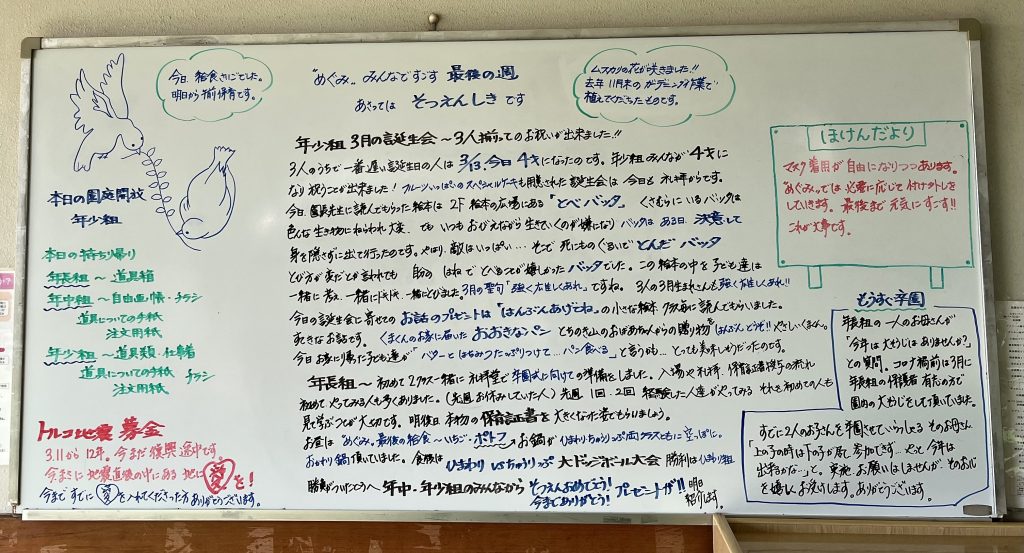 今日、給食さいごでした。
明日から午前保育です。
"めぐみ" みんなですごす 最後の週
あさっては そつえんしき です
ムスカリの花が咲きました!!
去年11月末のガーデニング作業で
植えてくださったものです。
本日の園庭開放
年少組
本日の持ち帰り
年長組〜道具箱
年中組〜自由画帳・チラシ
道具についての手紙
注文用紙
年少組〜道具類・仕事着
道具についての手紙 チラシ
注文用紙
トルコ地震 募金
3.11から12年。今まだ復興途中です。
今まさに地震直後の中にある地に
愛を!
今まですでに愛を入れてくださった方ありがとうございます。
年少組 3月の誕生会〜3人揃ってのお祝いが出来ました!!
3人のうちで一番遅い誕生日の人は 3/13、今日4才になったのです。年少組みんなが4才に
なり祝うことが出来ました! フルーツいっぱいのスペシャルケーキも用意された誕生会は 今日も 礼拝からです。
今日、園長先生に読んでもらった絵本は 2F 絵本の広場にある「とべバッタ」 くさむらにいるバッタは
色んな生き物にねらわれ大変、でも いつも おびえながら生きていくのが嫌になり バッタは ある日、決意して
身を隠さずに出て行ったのです。やはり、敵はいっぱい… そこで 死にものぐるいで とんだ バッタ
とび方が変だとか言われても 自分の はねで とべるのが嬉しかったバッタでした。この絵本の中を子ども達は
一緒に考え、一緒にドキドキ、一緒にとびました。3月の聖句「強く雄々しくあれ」ですね。3人の3月生まれさんも強く雄々しくあれ!!
今日の誕生会に寄せての お話のプレゼントは「はんぶんあげてね」の小さな絵本 クラス毎に読んでもらいました。
すてきなお話です。くまくんのお家に届いた おおきなパン とちのき山のおばあちゃんからの贈り物を「はんぶんどうぞ!!」やさしいくまくん。
今日お家に帰った子ども達が「バターとはちみつたっぷりつけて…パン食べる」と言うかも…とっても美味しそうだったのです。
年長組〜 初めて2クラス一緒に礼拝堂で 卒園式に向けての準備をしました。入場や礼拝、保育証書授与の流れ
初めてやってみる人も多くありました。(先週お休みしていた人) 先週 1回、2回 経験した人達がやってみる それを初めての人も
見て学ぶことが大切です。明後日 本物の保育証書を大きくなった姿でもらいましょう。
お昼は "めぐみ、最後の給食〜いちご・ポトフ→お鍋がひまわり、ちゅうりっぷ両クラスともに空っぽに。
おかわり鍋頂いていました。食後は ひまわり vs ちゅうりっぷ 大ドッジボール大会 勝利はひまわり組
勝負がついてよう〜 年中・年少組のみんなから そつえんおめでとう! 今までありがとう! プレゼントが!! 明日紹介します。
ほけんだより
マスク着用が自由になりつつあります。
めぐみっては 必要に応じて付けたりトレを
していきます。最後まで元気にすごす!!
これが大事です。
もうすぐ卒園
年長組の一人のお母さんが
「今年は大そうじはありませんか?」
との質問。コロナ禍前は3月に
年長組の保護者 有志の方で
園内の大そうじをして頂いていました。
すでに2人のお子さんを卒園させていらっしゃる そのお母さん
「上の子の時は下の子が居て参加できず…やっと今年は
出来るかな…」と。実施、お願いはしませんが、そのお心
を嬉しくお受けします。ありがとうございます。